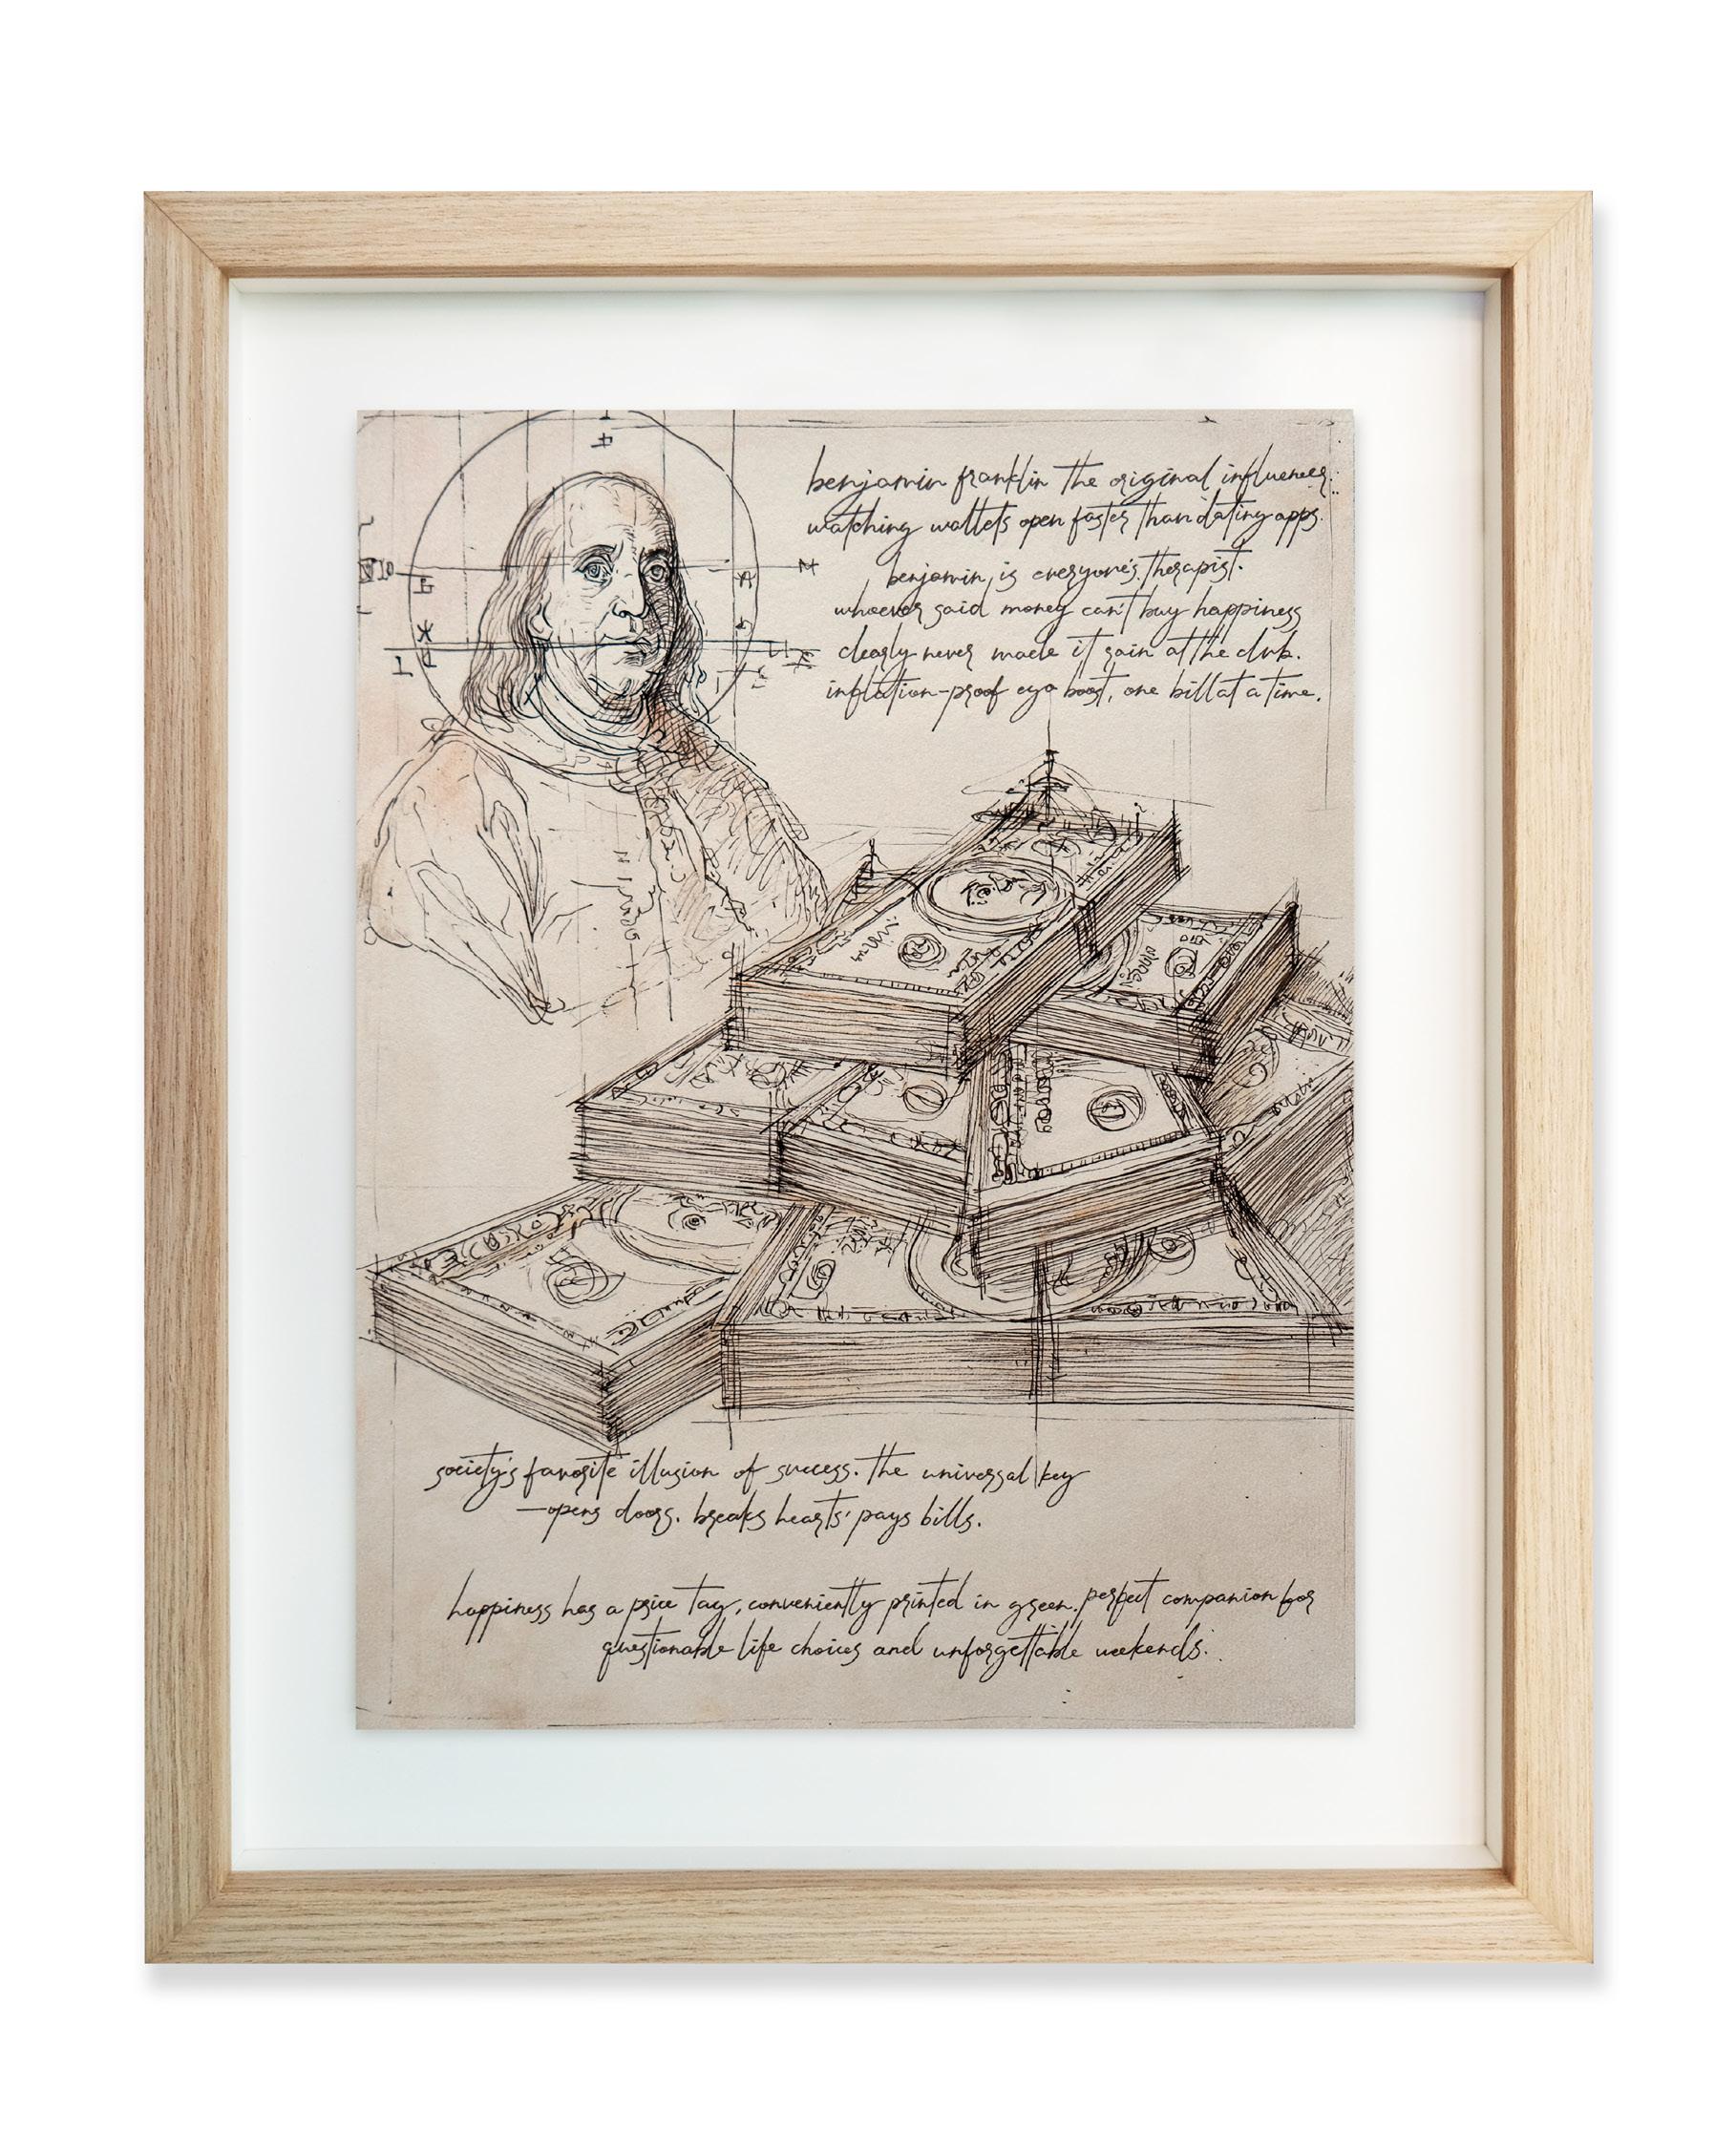 benjamin franklin the original influencer.
watching wallets open faster than dating apps.
benjamin, is everyone's therapist.
whoever said money can't buy happiness
clearly never made it rain at the club.
inflation-proof ego boost, one bill at a time.
society's favorite illusion of success. the universal key
—opens doors. breaks hearts' pays bills.
happiness has a price tag, conveniently printed in green. perfect companion for
questionable life choices and unforgettable weekends.